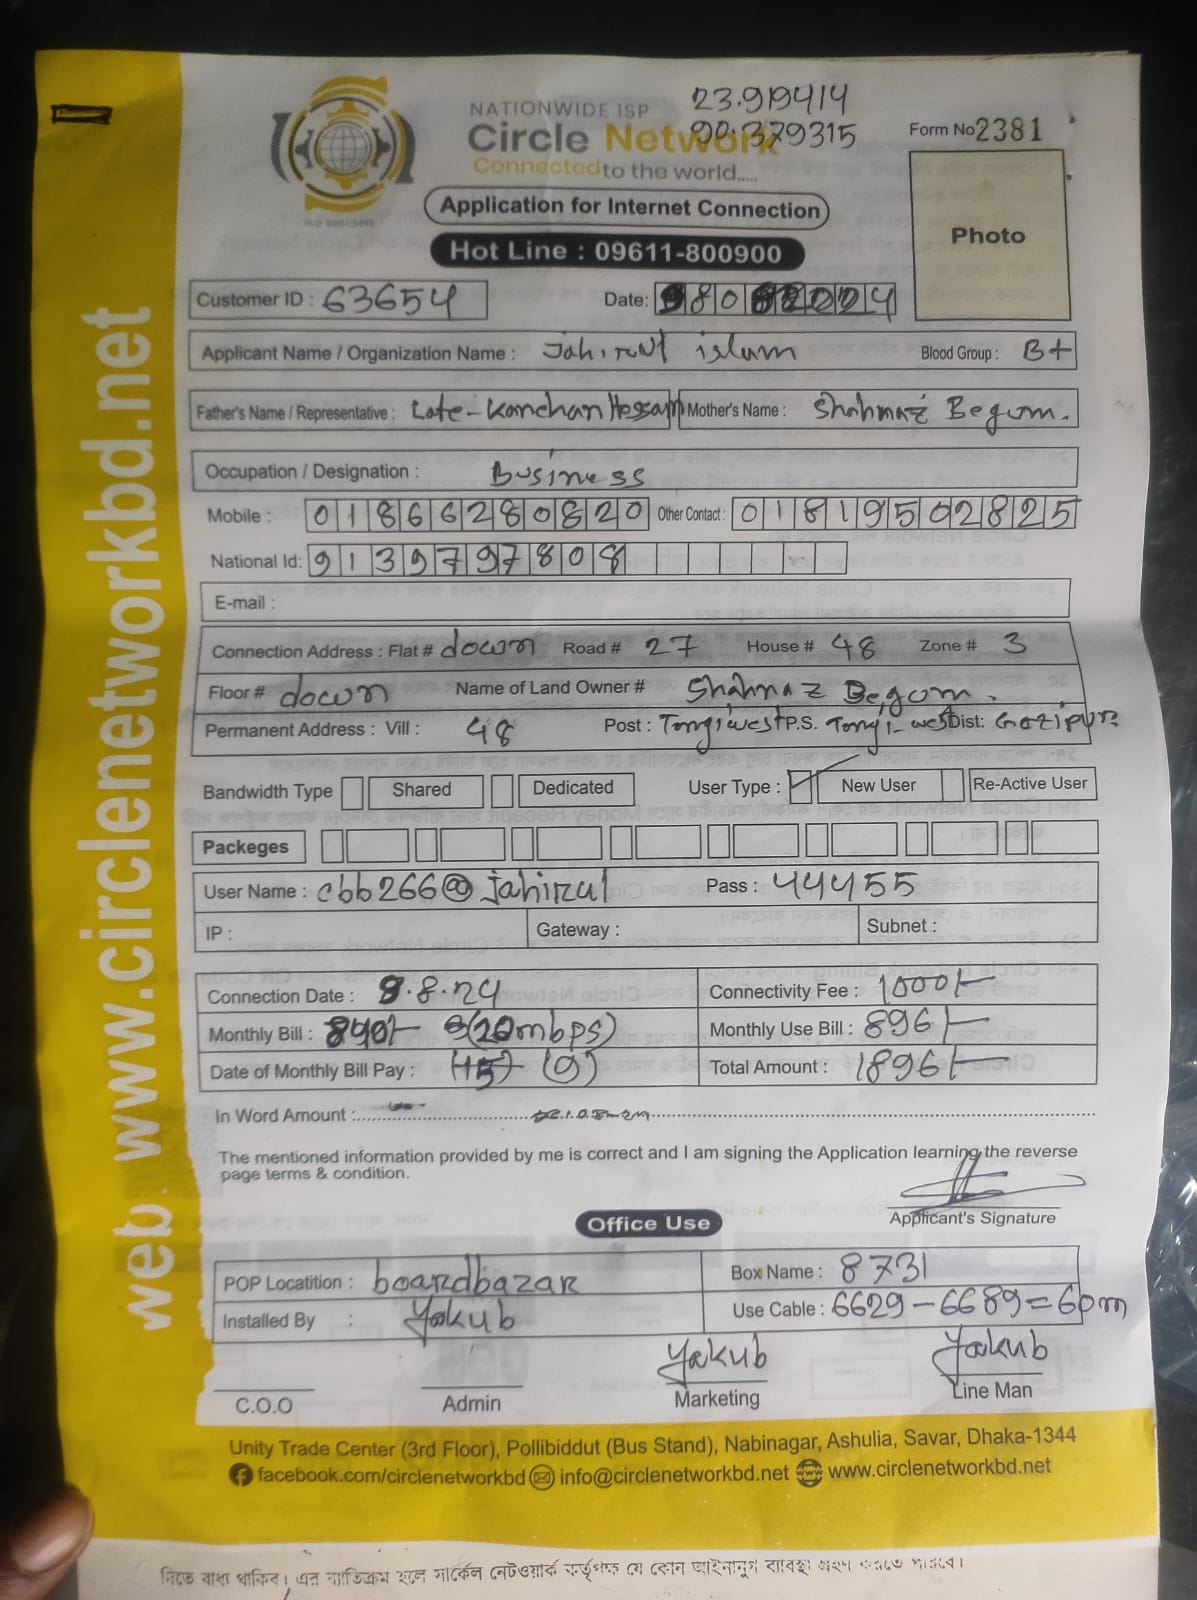 NATIONWIDE ISP
Circle Network
Connected to the world.....
23.919414
90.379315
Form No 2381
Application for Internet Connection
Hot Line : 09611-800900
Photo
Customer ID : 63654
Date: 8082024
Applicant Name / Organization Name : Jahirul islam Blood Group : B+
Father's Name / Representative : Late - Kanchan Hossain Mother's Name : Shahnaz Begum.
Occupation / Designation : Business
Mobile : 01866280820 Other Contact : 01819502825
National Id: 9139797808
E-mail :
Connection Address : Flat # down Road # 27 House # 48 Zone # 3
Floor # down Name of Land Owner # Shahnaz Begum.
Permanent Address : Vill : 48 Post : Tongi west P.S. Tongi-west Dist: Gazipur
Bandwidth Type Shared Dedicated User Type : New User Re-Active User
Packeges
User Name : cbb266@jahirul Pass : 44455
IP : Gateway : Subnet :
Connection Date : 9.8.24 Connectivity Fee : 1000/-
Monthly Bill : 840/- (20mbps) Monthly Use Bill : 896/-
Date of Monthly Bill Pay : (9) Total Amount : 1896/-
In Word Amount :
The mentioned information provided by me is correct and I am signing the Application learning the reverse
page terms & condition.
Applicant's Signature
Office Use
POP Locatition : boardbazar Box Name : 8731
Installed By : Yakub Use Cable : 6629 - 6689 = 60m
Yakub Yakub
C.O.O Admin Marketing Line Man
Unity Trade Center (3rd Floor), Pollibiddut (Bus Stand), Nabinagar, Ashulia, Savar, Dhaka-1344
facebook.com/circlenetworkbd info@circlenetworkbd.net www.circlenetworkbd.net
web www.circlenetworkbd.net
নিতে বাধ্য থাকিব। এর ব্যতিক্রম হলে সার্কেল নেটওয়ার্ক কর্তৃপক্ষ যে কোন আইনানুগ ব্যবস্থা গ্রহণ করতে পারবে।